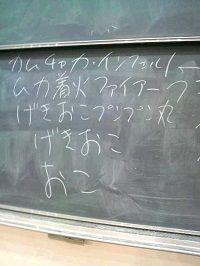 カムチャッカ・インフェルノ
ムカ着火ファイアー
げきおこプンプン丸
げきおこ
おこ